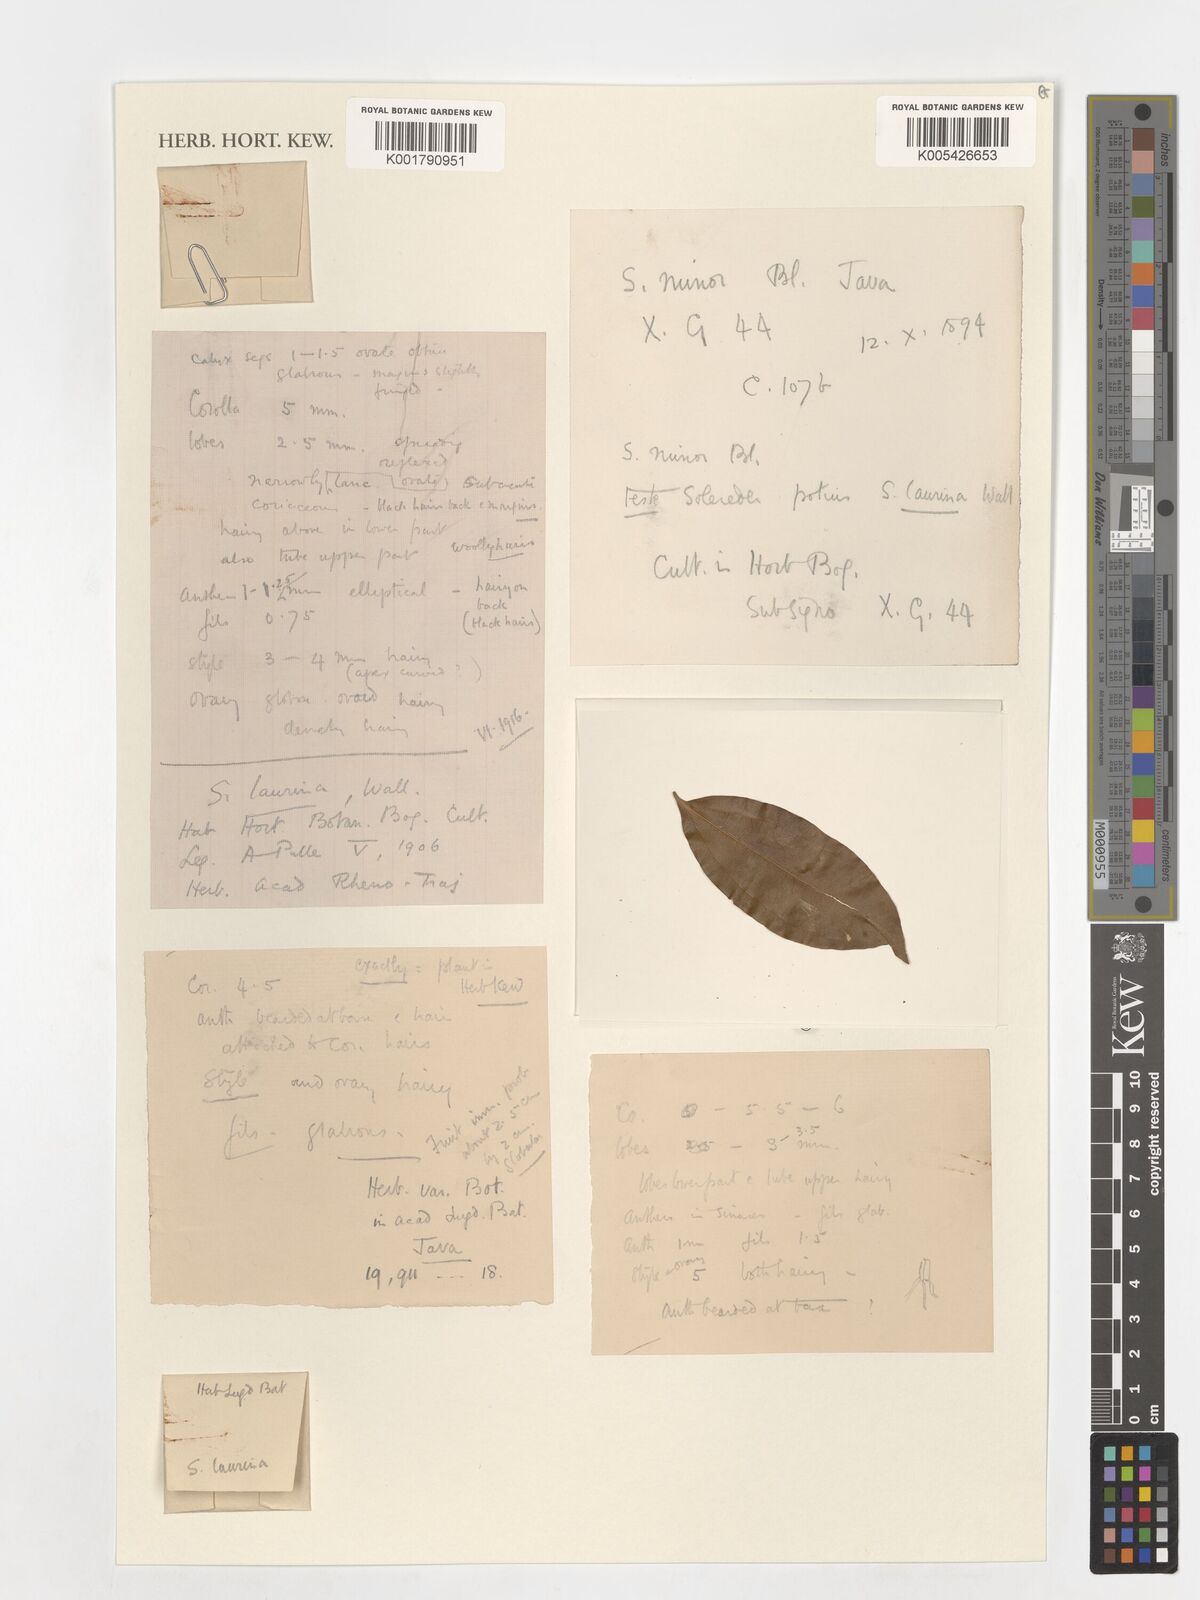 HERB. HORT. KEW.
ROYAL BOTANIC GARDENS KEW
K001790951
ROYAL BOTANIC GARDENS KEW
K005426653
Calyx segs 1-1·5 ovate obtuse
glabrous - margins slightly
fringed -
Corolla 5 mm.
lobes 2·5 mm. spreading
reflexed
narrowly lanc ovate subacute
coriaceous - black hairs back & margins.
hairy above in lower part
also tube upper part woolly hairs
anthers 1- elliptical - hairy on
back
fils 0·75 (black hairs)
style 3-4 mm hairy
(apex curved ")
ovary ovoid hairy
densely hairy
VI. 1916.
S. laurina, Wall.
Hab Hort Botan. Bog. Cult.
Leg. A Pulle V, 1906
Herb. Acad Rheno-Traj
exactly = plant in
Herb Kew
Cor. 4·5
anth bearded at base c hair
attached to Cor. hairs
Style and ovary hairy
fils - glabrous.
Fruit imm. prob
about 2·5 cm
by 2 cm.
globular
Herb. var. Bot.
in acad Lugd. Bat.
Java
19,911 --- 18.
Lugd Bat
S. laurina
S. minor Bl. Java
X. G 44
12. X. 1894
C. 107b
S. minor Bl.
teste Solereder potius S. laurina Wall
Cult. in Hort Bog.
sub signo X. G. 44
Co. - 5·5 - 6
lobes - 3·5 mm.
lobes lower part & tube upper hairy
Anthers in sinuses - fils glab.
Anth 1 m fils 1·5
Style & ovary
5 both hairy -
Anth bearded at base ?
inches
Density
centimetres
Don Williams
M000955
Royal Botanic Gardens
Kew
0 1 2 3 4 5 6 7 8 9 10
cm
copyright reserved